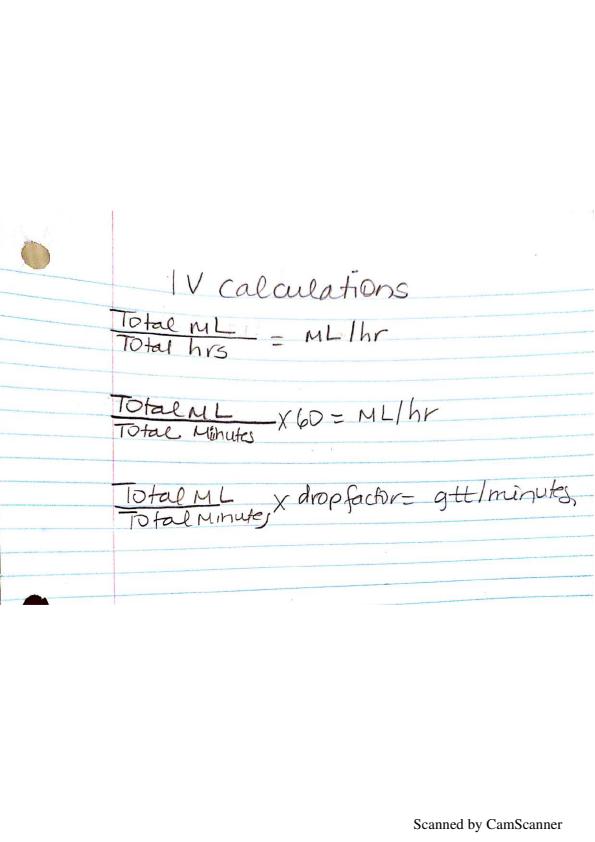 IV calculations
Total ML
Total hrs = ML/hr
Total ML
Total Minutes x 60 = ML/hr
Total ML
Total Minutes x drop factor = gtt/minutes,
Scanned by CamScanner